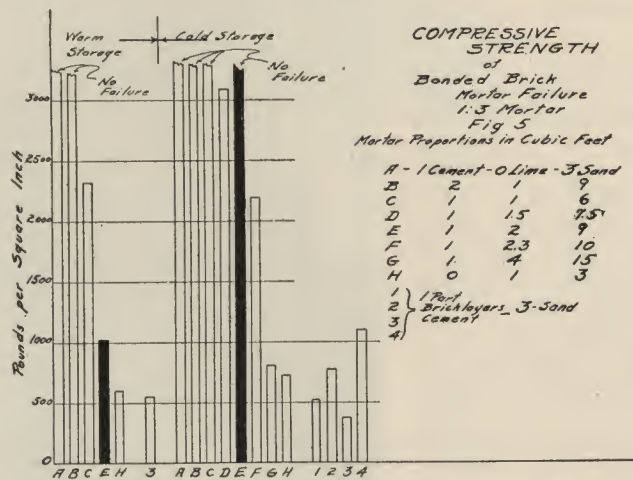 Warm
Storage
Cold Storage
No
Failure
No
Failure
3000
2500
2000
1500
1000
500
0
Pounds per Square Inch
A B C E H 3 A B C D E F G H 1 2 3 4
COMPRESSIVE
STRENGTH
of
Bonded Brick
Mortar Failure
1:3 Mortar
Fig 5
Mortar Proportions in Cubic Feet
A - 1 Cement - 0 Lime - 3 Sand
B 2 1 9
C 1 1 6
D 1 1.5 7.5
E 1 2 9
F 1 2.3 10
G 1 4 15
H 0 1 3
1
2
3
4
1 Part
Bricklayers - 3-Sand
Cement